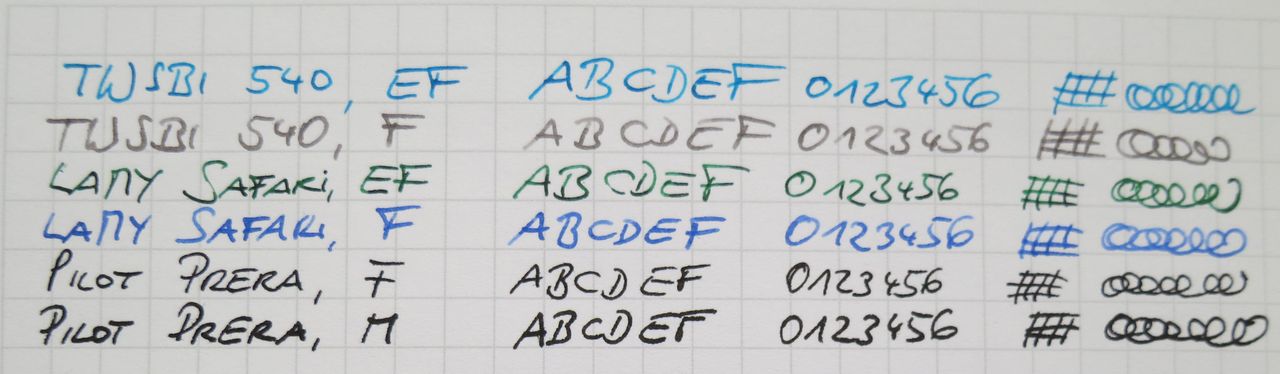 TWSBI 540, EF ABCDEF 0123456
TWSBI 540, F ABCDEF 0123456
LAMY SAFARi, EF ABCDEF 0123456
LAMY SAFARi, F ABCDEF 0123456
PILOT PRERA, F ABCDEF 0123456
PILOT PRERA, M ABCDEF 0123456